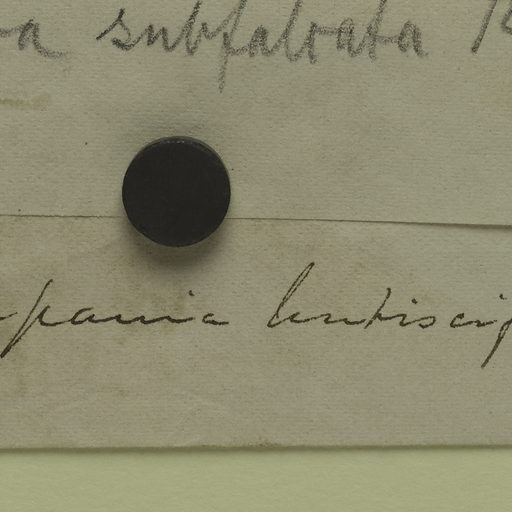 a subfalcata R
pania lentiscif